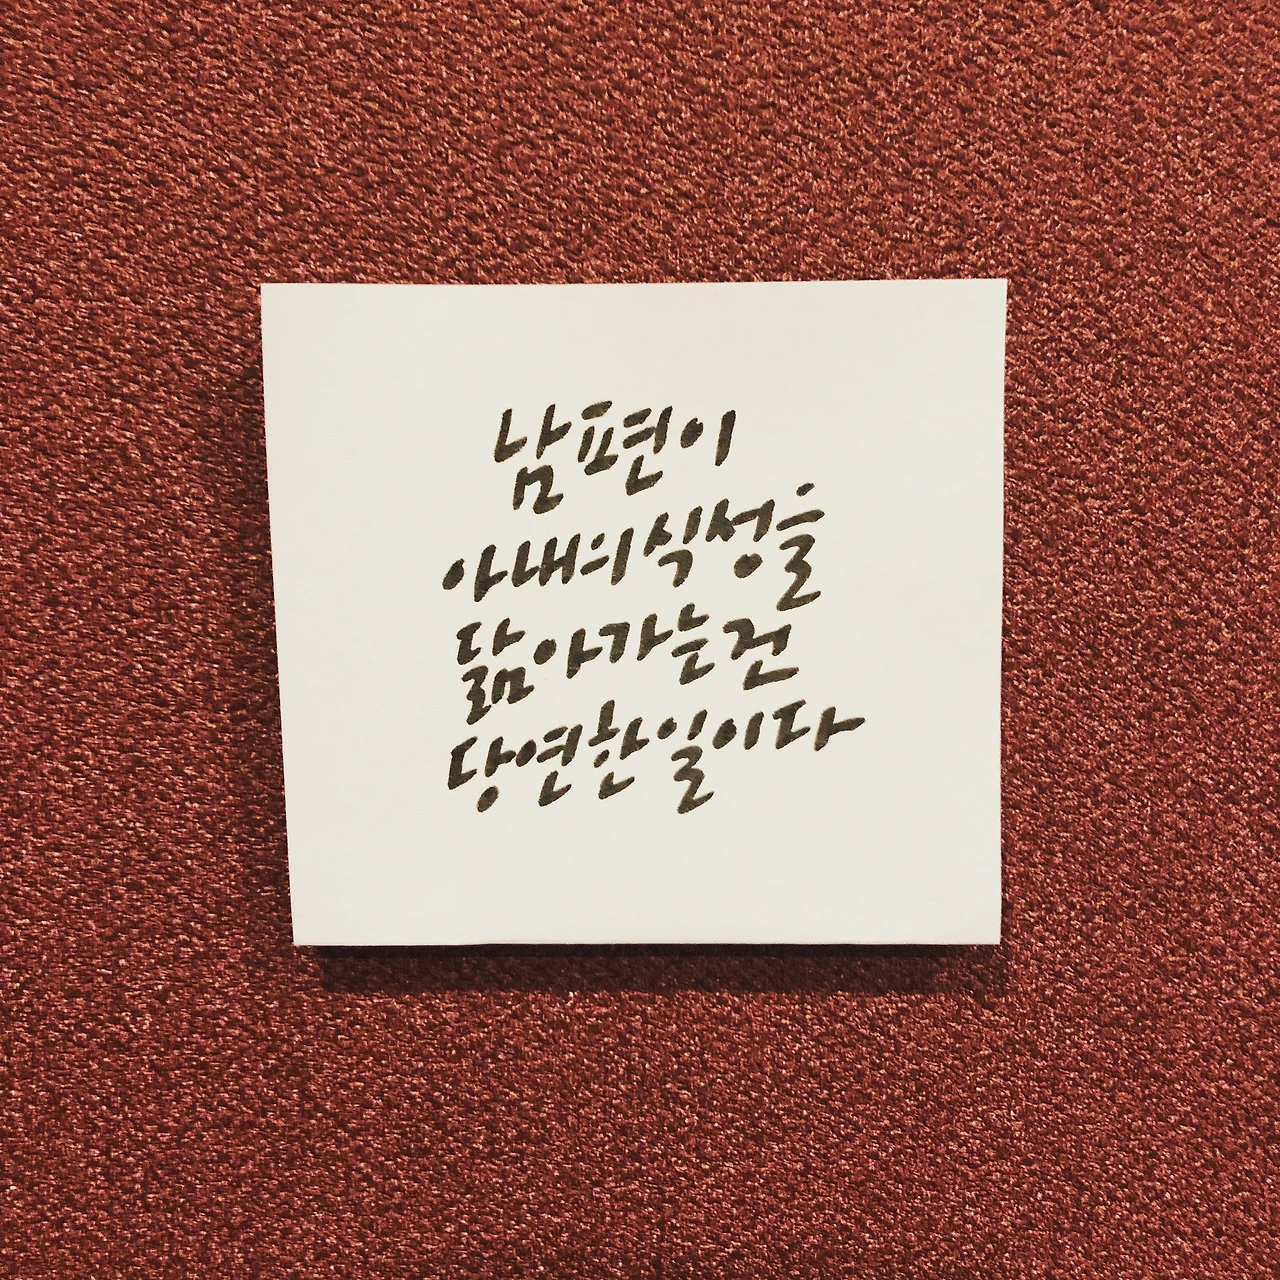 남편이
아내의 식성을
닮아가는 건
당연한 일이다